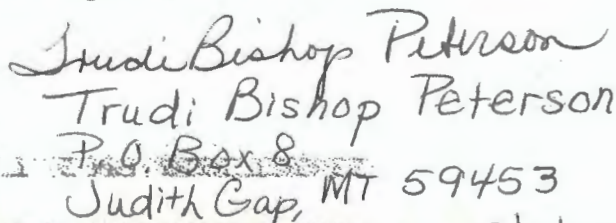 Trudi Bishop Peterson
Trudi Bishop Peterson
P.O. Box 8
Judith Gap, MT 59453